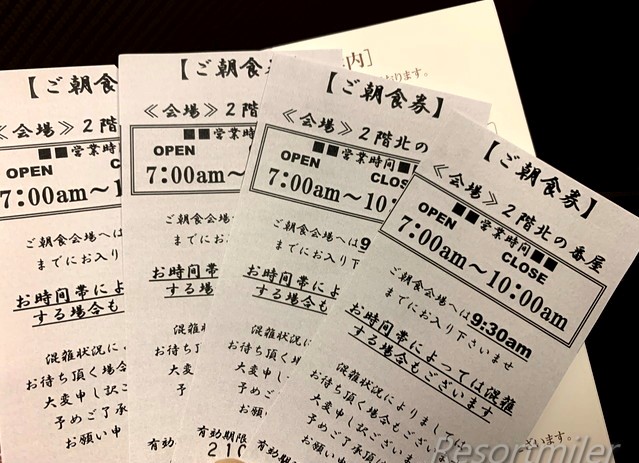 内］
おります。
【ご朝食
会場》２階
■■営業
OPEN
7:00am～1
ご朝食会場
までにお入り
お時間帯に
する場合も
混雑状況に
お待ち頂く場合
大変申し訳
予めご了承
お願い申
【ご朝食券
《会場》２階
■■営業時
OPEN
7:00am～
ご朝食会場
までに
お時間帯
する場
混雑
お待ち
大変
予
有効
【ご朝食券】
《会場》２階北の
■■営業時間■
OPEN
CLOS
7:00am～10:
ご朝食会場へは9
までにお入り下
お時間帯によ
する場合も
混雑状況に
お待ち頂く
大変申し訳
予めご
お願い
有効期限
210
【ご朝食券】
《会場》２階北の番屋
■■営業時間■■
OPEN
CLOSE
7:00am～10:00am
ご朝食会場へは9:30am
までにお入り下さいませ
お時間帯によっては混雑
する場合もございます
混雑状況によりましては
お待ち頂く場合もござい
大変申し訳ございま
予めご了承頂
お願い申
有効期限
ざいます。
Resortmiler